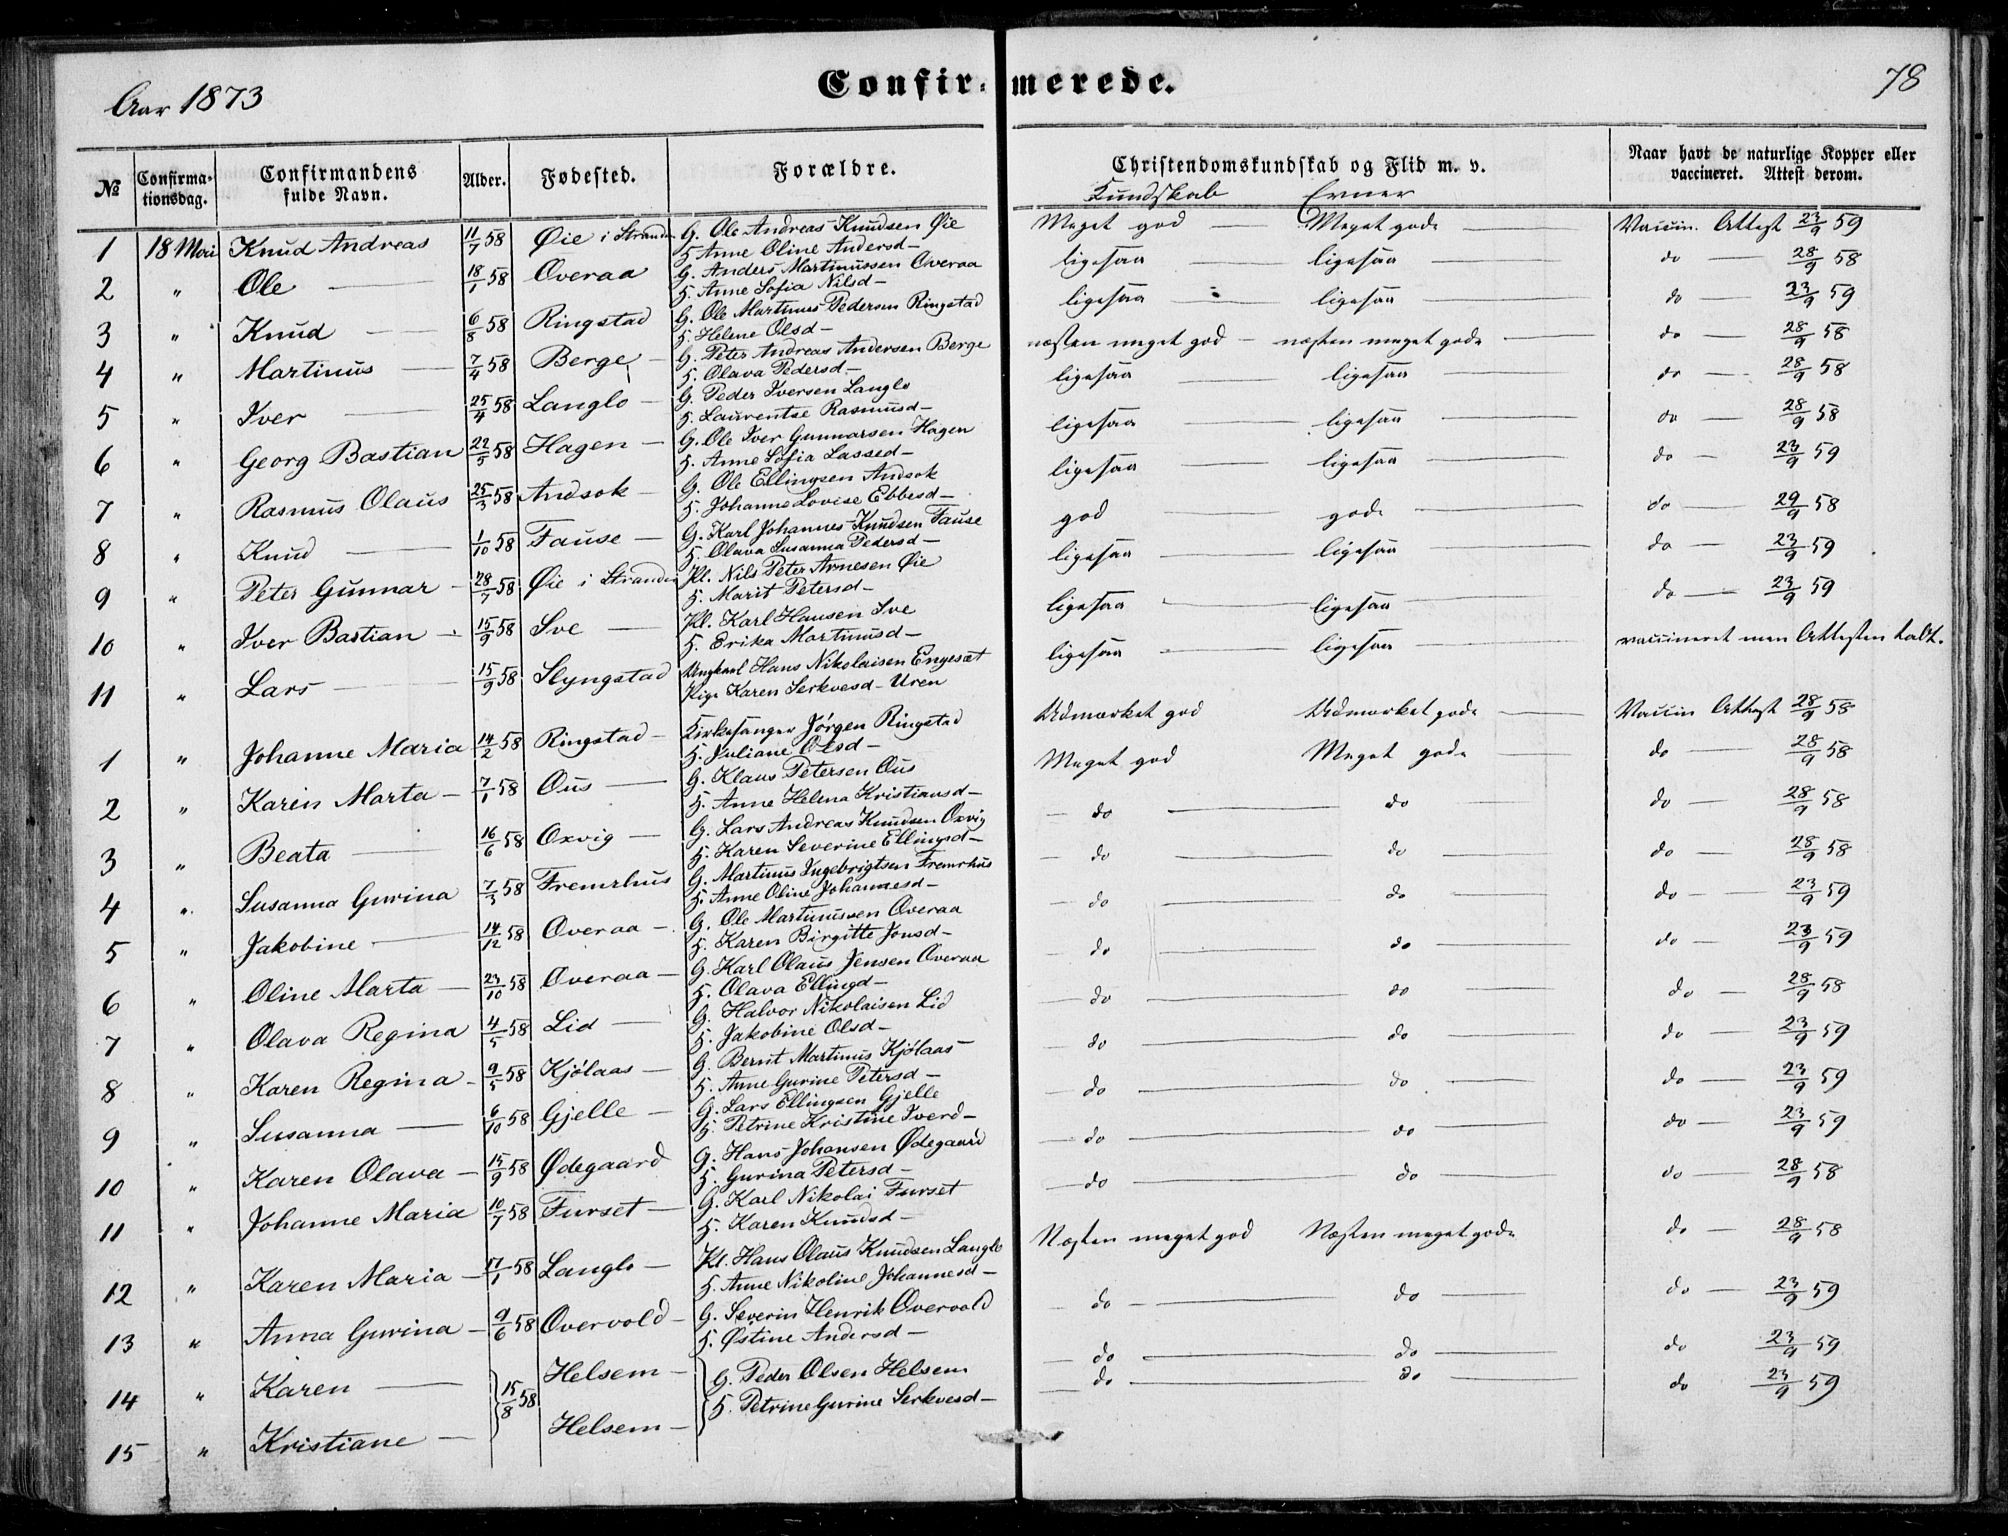 Aar 1873
Confirmerede.
78
№ Confirmationsdag. Confirmandens fulde Navn. Alder. Fødested. Forældre. Christendomskundskab og Flid m. v. Naar havt de naturlige Kopper eller vaccineret. Attest derom.
Kundskab Evner
1 18 Mai Knud Andreas 11/7 58 Øie i Stranden G. Ole Andreas Knudsen Øie Meget god — Meget gode — Vaccin. Attest 23/9 59
H. Anne Oline Andersd—
2 " Ole — 18/1 58 Overaa G. Anders Martinussen Overaa ligesaa — ligesaa — do — 28/9 58
H. Anne Sofia Nilsd—
3 " Knud — 6/8 58 Ringstad G. Ole Martinus Pedersen Ringstad ligesaa — ligesaa do — 23/9 59
H. Helene Olsd—
4 " Martinus — 7/4 58 Berge — G. Peter Andreas Andersen Berge næsten meget god — næsten meget gode — do — 28/9 58
H. Olava Pedersd—
5 " Iver — 25/4 58 Langlo — G. Peder Iversen Langlo ligesaa — ligesaa — do — 28/9 58
H. Laurentse Rasmusd—
6 " Georg Bastian 22/5 58 Hagen — G. Ole Iver Gunnarsen Hagen ligesaa — ligesaa — do — 28/9 58
H. Anne Sofia Lassed—
7 " Rasmus Olaus 25/3 58 Andsok — G. Ole Ellingsen Andsok ligesaa — ligesaa — do — 23/9 59
H. Johanne Lovise Ebbesd—
8 " Knud — 1/10 58 Fause — G. Karl Johannes Knudsen Fause god — gode — do — 29/9 58
H. Olava Susanna Pedersd—
9 " Peter Gunnar — 28/7 58 Øie i Stranden Pl. Nils Peter Arnesen Øie ligesaa — ligesaa — do — 23/9 59
H. Marit Petersd—
10 " Iver Bastian — 15/9 58 Sve — Pl. Karl Hansen Sve ligesaa — ligesaa — do — 23/9 59
H. Erika Martinusd—
11 " Lars — 15/9 58 Slyngstad Ungkarl Hans Nikolaisen Engeset ligesaa — ligesaa — vaccineret men Attesten tabt.
Pige Karen Serkvesd— Uren
1 " Johanne Maria 14/2 58 Ringstad — Kirkesanger Jörgen Ringstad Udmærket god Udmærket gode — Vaccin Attest 28/9 58
H. Juliane Olsd—
2 " Karen Marta — 7/1 58 Ous — G. Klaus Petersen Ous Meget god Meget gode — do — 28/9 58
H. Anne Helena Kristiansd—
3 " Beata — 16/6 58 Oxvig — G. Lars Andreas Knudsen Oxvig — do — do — do — 28/9 58
H. Karen Severine Ellingsd—
4 " Susanna Gurina 7/3 58 Fremrhus G. Martinus Ingebrigtsen Fremrhus — do — do — do — 28/9 58
H. Anne Oline Johannesd—
5 " Jakobine — 14/12 58 Overaa — G. Ole Martinussen Overaa — do — do — do — 23/9 59
H. Karen Birgitte Jonsd—
6 " Oline Marta — 23/10 58 Overaa — G. Karl Olaus Jensen Overaa — do — do — do — 23/9 59
H. Olava Ellingd—
7 " Olava Regina 4/5 58 Lid — G. Halvor Nikolaisen Lid — do — do — do — 28/9 58
H. Jakobine Olsd—
8 " Karen Regina — 9/5 58 Kjölaas — G. Bernt Martinus Kjölaas — do — do — do — 23/9 59
H. Anne Gurine Petersd—
9 " Susanna — 6/10 58 Gjelle — G. Lars Ellingsen Gjelle — do — do — do — 23/9 59
H. Petrine Kristine Iverd—
10 " Karen Olava — 15/9 58 Ødegaard G. Hans Johansen Ødegaard — do — do — do — 23/9 59
H. Gurina Petersd—
11 " Johanne Maria 10/7 58 Furset — G. Karl Nikolai Furset — do — do — do — 28/9 58
H. Karen Knudsd—
12 " Karen Maria — 17/1 58 Langlo — Pl. Hans Olaus Knudsen Langlo Næsten meget god Næsten meget gode do — 28/9 58
H. Anne Nikoline Johannesd—
13 " Anna Gurina — 9/6 58 Overvold — G. Severin Henrik Overvold — do — do — do — 23/9 59
H. Østine Andersd—
14 " Karen — 15/8 58 Helsem — G. Peder Olsen Helsem — do — do — do 23/9 59
15 " Kristiane — Helsem — H. Petrine Gurine Serkvesd— — do — do — do 23/9 59